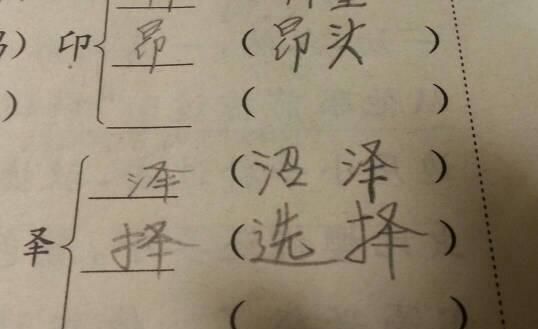 印 昂 (昂头)
( )
泽 (沼泽)
择 (选择)
(